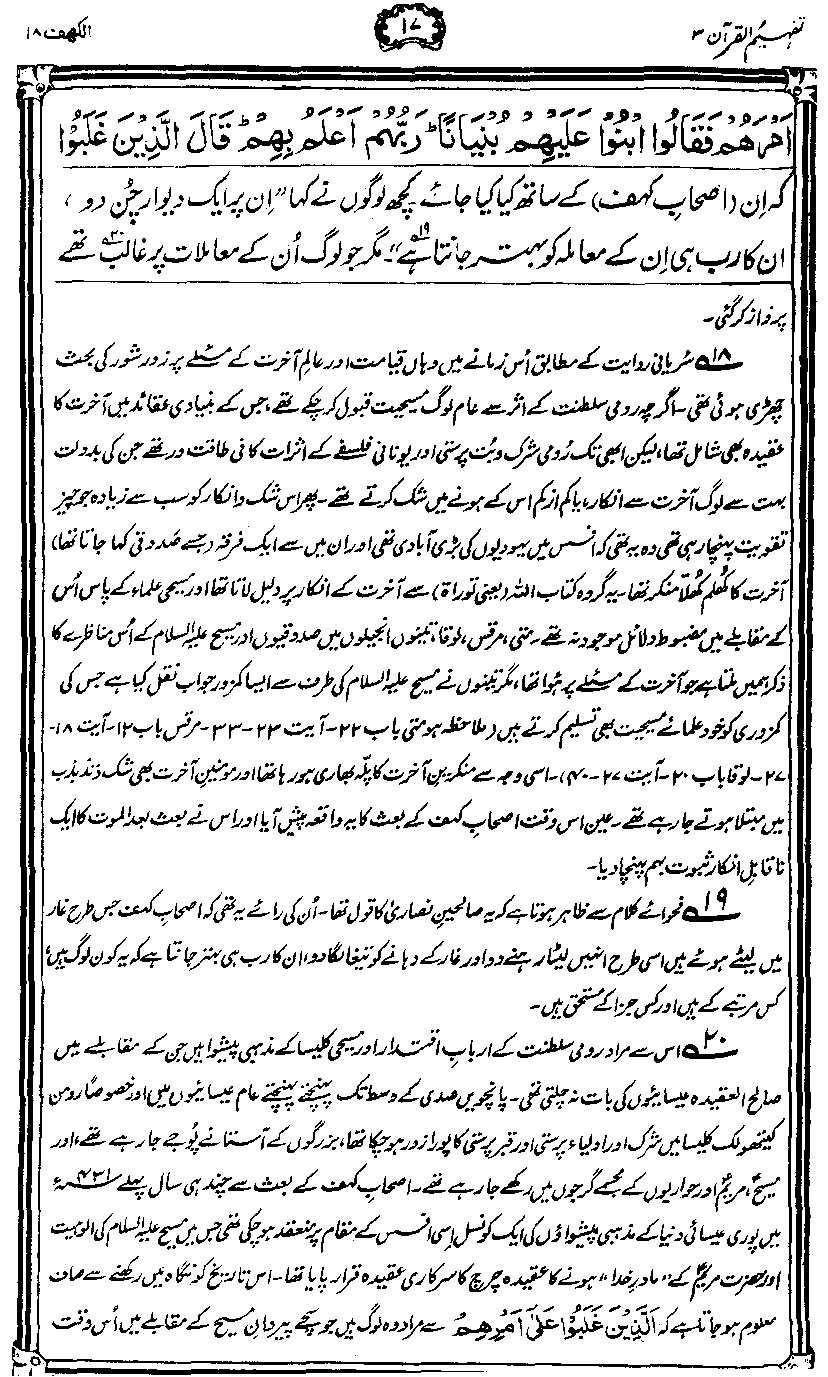 تفہیم القرآن ۳
۱۷
الکھف ۱۸
اَمْرَهُمْ فَقَالُوا ابْنُوْا عَلَيْهِمْ بُنْيَانًا ؕ رَبُّهُمْ اَعْلَمُ بِهِمْ ؕ قَالَ الَّذِيْنَ غَلَبُوْا
کہ اِن (اصحابِ کہف) کے ساتھ کیا کیا جائے۔ کچھ لوگوں نے کہا ”اِن پر ایک دیوار چُن دو،
ان کا رب ہی اِن کے معاملہ کو بہتر جانتا ہے۱۹“۔ مگر جو لوگ اُن کے معاملات پر غالب۲۰ تھے
پرواز کر گئی۔
۱۸ سُریانی روایت کے مطابق اُس زمانے میں وہاں قیامت اور عالمِ آخرت کے مسئلے پر زور شور کی بحث
چھڑی ہوئی تھی۔ اگرچہ رومی سلطنت کے اثر سے عام لوگ مسیحیت قبول کر چکے تھے، جس کے بنیادی عقائد میں آخرت کا
عقیدہ بھی شامل تھا، لیکن ابھی تک رُومی شرک و بُت پرستی اور یونانی فلسفے کے اثرات کافی طاقت ور تھے جن کی بدولت
بہت سے لوگ آخرت سے انکار، یا کم از کم اس کے ہونے میں شک کرتے تھے۔ پھر اس شک و انکار کو سب سے زیادہ جو چیز
تقویت پہنچا رہی تھی وہ یہ تھی کہ افسس میں یہودیوں کی بڑی آبادی تھی اور ان میں سے ایک فرقہ (جسے صَدوقی کہا جاتا تھا)
آخرت کا کُھلّم کُھلّا منکر تھا۔ یہ گروہ کتاب اللہ (یعنی توراۃ) سے آخرت کے انکار پر دلیل لاتا تھا اور مسیحی علماء کے پاس اُس
کے مقابلے میں مضبوط دلائل موجود نہ تھے۔ متی، مرقس، لوقا، تینوں انجیلوں میں صدوقیوں اور مسیح علیہ السلام کے اُس مناظرے کا
ذکر ہمیں ملتا ہے جو آخرت کے مسئلے پر ہوا تھا، مگر تینوں نے مسیح علیہ السلام کی طرف سے ایسا کمزور جواب نقل کیا ہے جس کی
کمزوری کو خود علمائے مسیحیت بھی تسلیم کرتے ہیں (ملاحظہ ہو متی باب ۲۲۔ آیت ۲۳-۳۳۔ مرقس باب ۱۲۔ آیت ۱۸-
۲۷۔ لوقا باب ۲۰۔ آیت ۲۷-۴۰)۔ اسی وجہ سے منکرینِ آخرت کا پلّہ بھاری ہو رہا تھا اور مومنینِ آخرت بھی شک و تذبذب
میں مبتلا ہوتے جا رہے تھے۔ عین اس وقت اصحابِ کہف کے بعث کا یہ واقعہ پیش آیا اور اس نے بعث بعد الموت کا ایک
ناقابلِ انکار ثبوت بہم پہنچا دیا۔
۱۹ فحوائے کلام سے ظاہر ہوتا ہے کہ یہ صالحینِ نصاریٰ کا قول تھا۔ اُن کی رائے یہ تھی کہ اصحابِ کہف جس طرح غار
میں لیٹے ہوئے ہیں اسی طرح انہیں لیٹا رہنے دو اور غار کے دہانے کو تیغا لگا دو، ان کا رب ہی بہتر جانتا ہے کہ یہ کون لوگ ہیں،
کس مرتبے کے ہیں اور کس جزا کے مستحق ہیں۔
۲۰ اس سے مراد رومی سلطنت کے اربابِ اقتدار اور مسیحی کلیسا کے مذہبی پیشوا ہیں جن کے مقابلے میں
صالح العقیدہ عیسائیوں کی بات نہ چلتی تھی۔ پانچویں صدی کے وسط تک پہنچتے پہنچتے عام عیسائیوں میں اور خصوصًا رومن
کیتھولک کلیسا میں شرک اور اولیاء پرستی اور قبر پرستی کا پورا زور ہو چکا تھا، بزرگوں کے آستانے پُوجے جا رہے تھے، اور
مسیحؑ، مریمؑ اور حواریوں کے مجسمے گرجوں میں رکھے جا رہے تھے۔ اصحابِ کہف کے بعث سے چند ہی سال پہلے ۴۳۱ء
میں پوری عیسائی دنیا کے مذہبی پیشواؤں کی ایک کونسل اِسی افسس کے مقام پر منعقد ہو چکی تھی جس میں مسیح علیہ السلام کی الوہیت
اور حضرت مریمؑ کے ”مادرِ خدا“ ہونے کا عقیدہ چرچ کا سرکاری عقیدہ قرار پایا تھا۔ اس تاریخ کو نگاہ میں رکھنے سے صاف
معلوم ہو جاتا ہے کہ اَلَّذِيْنَ غَلَبُوْا عَلٰٓى اَمْرِهِمْ سے مراد وہ لوگ ہیں جو سچے پیروانِ مسیح کے مقابلے میں اُس وقت